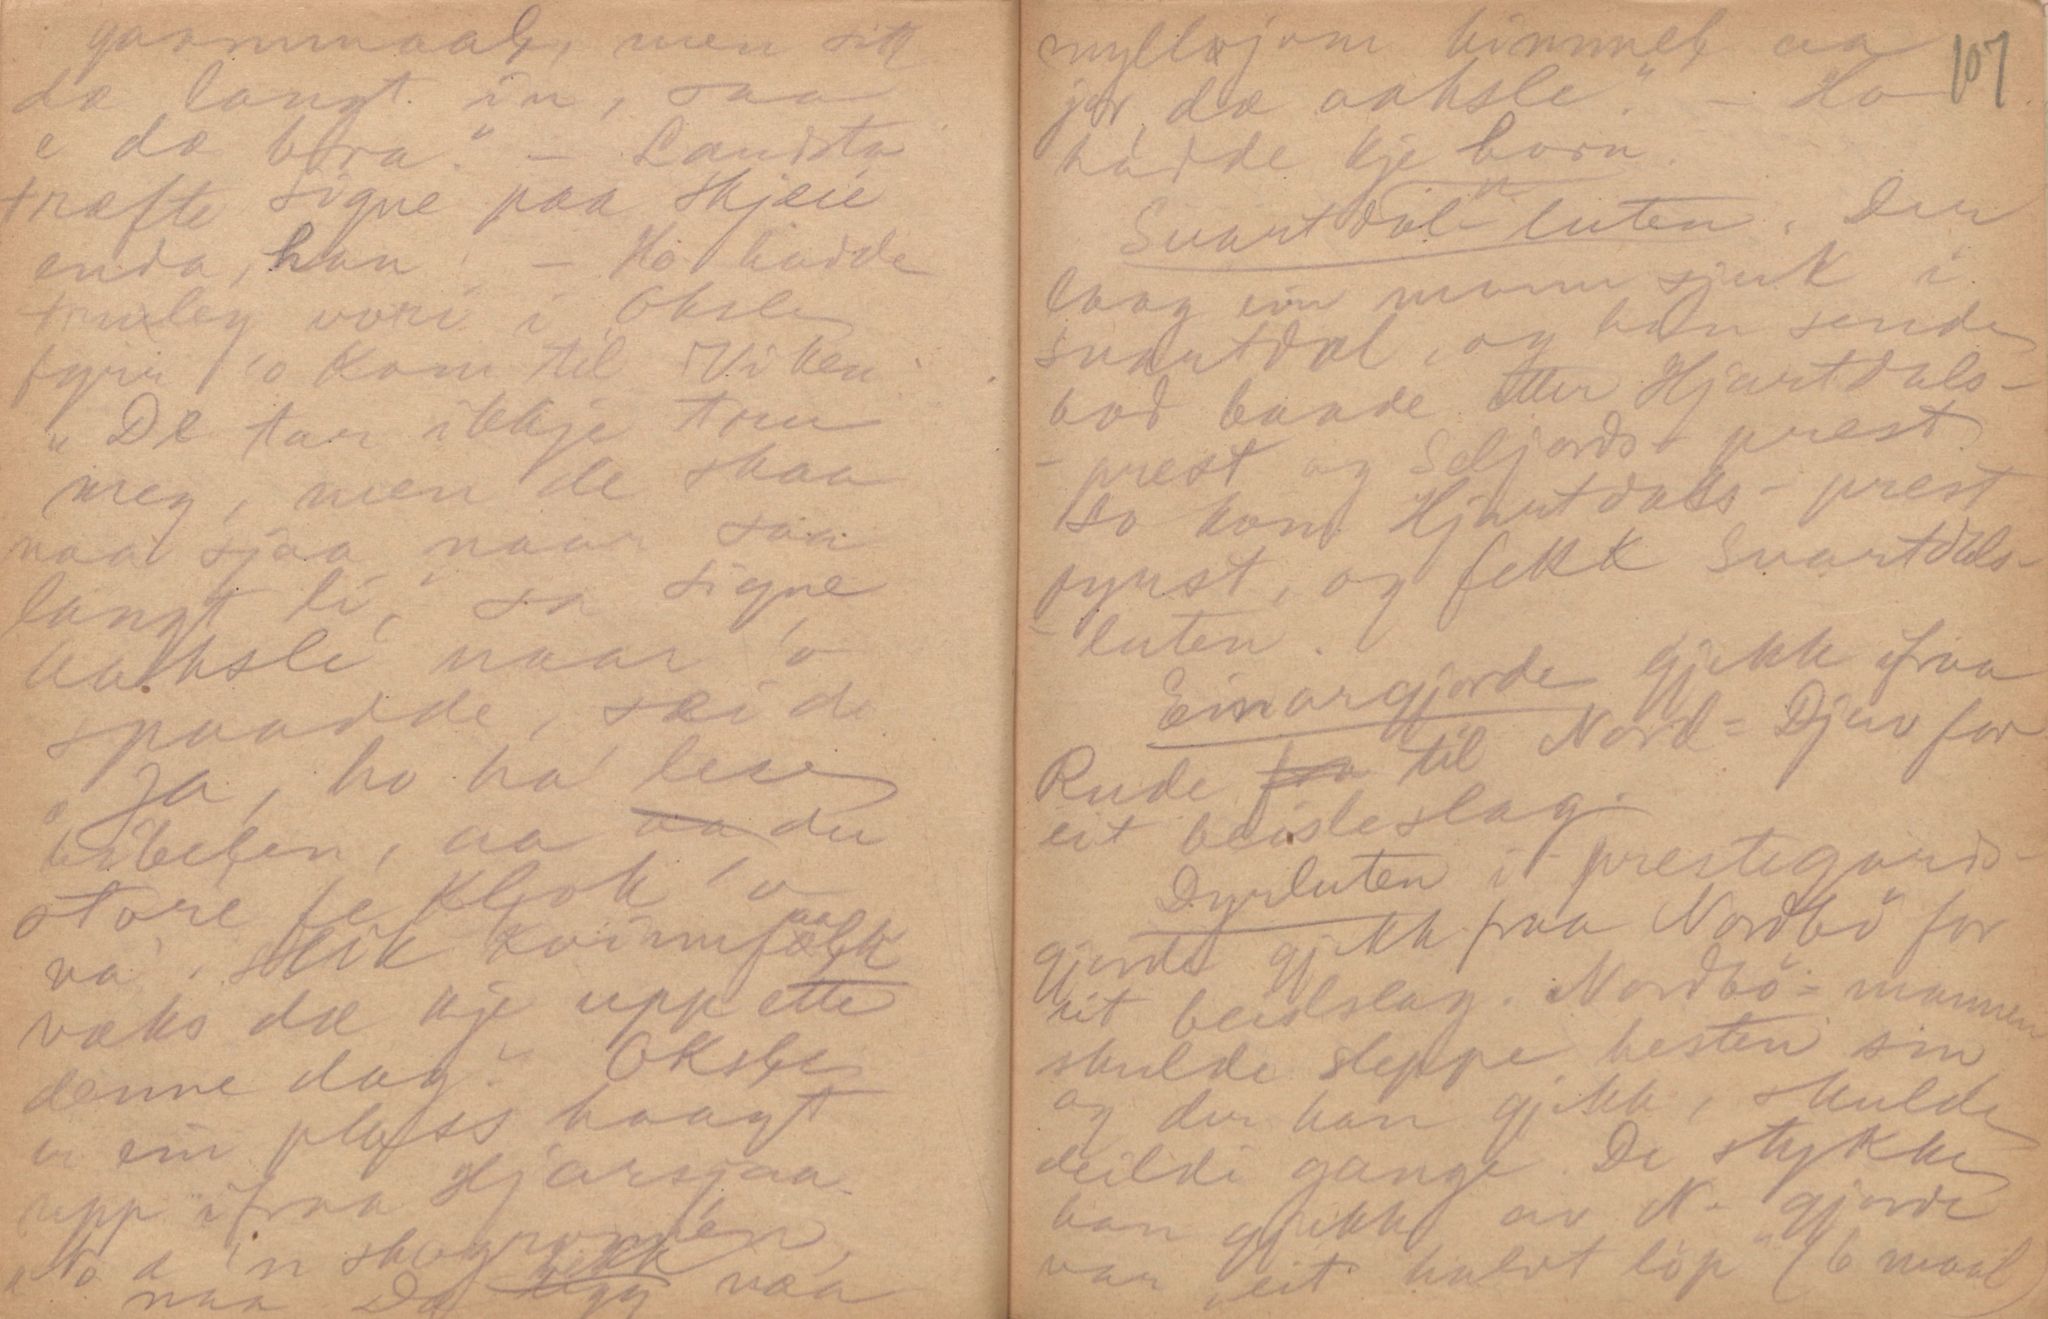 gammaalt, men sit
dæ langt in, saa
e dæ bra." – Landsta
træfte Signe paa Skjeie
enda, han. – Ho hadde
truleg vori i Oksle
fyrr 'o kom til Viken.
"De tar ikkje tru
meg, men de skaa
naa sjaa naar saa
langt li," sa Signe
Aaksli naar 'o
spaadde, sei de
"Ja, ho ha' lese
bibelen, aa den
store fe kljok 'o
va'. Slik kvinnfaalk
væks dæ kje upp ette
denne dag." Oksle
er ein plass haagt
upp ifraa Hjarsjaa
naa. Dæ vekk vaa
107
myllojom himmel aa
jor, dæ aaksle." – Ho
hadde kje born.
Svartdal-luten. Der
laag ein mann sjuk i
Svartdal, og han sende
bod baade etter Hjartdals-
-prest og Seljords-prest
So kom Hjartdals-prest
fyrst, og fekk Svartdals-
-luten.
Einargjorde gjekk ifraa
Rude til Nord-Djuv for
eit beisleslag.
Dyrluten i prestegards-
gjorde gjekk fraa Nordbö for
eit beidslag. Nordbö-mannen
skulde sleppe hesten sin
og der han gjekk, skulde
deildi gange. De stykke
han gjekk av N- gjorde
var "eit halvt löp" (6 maal)